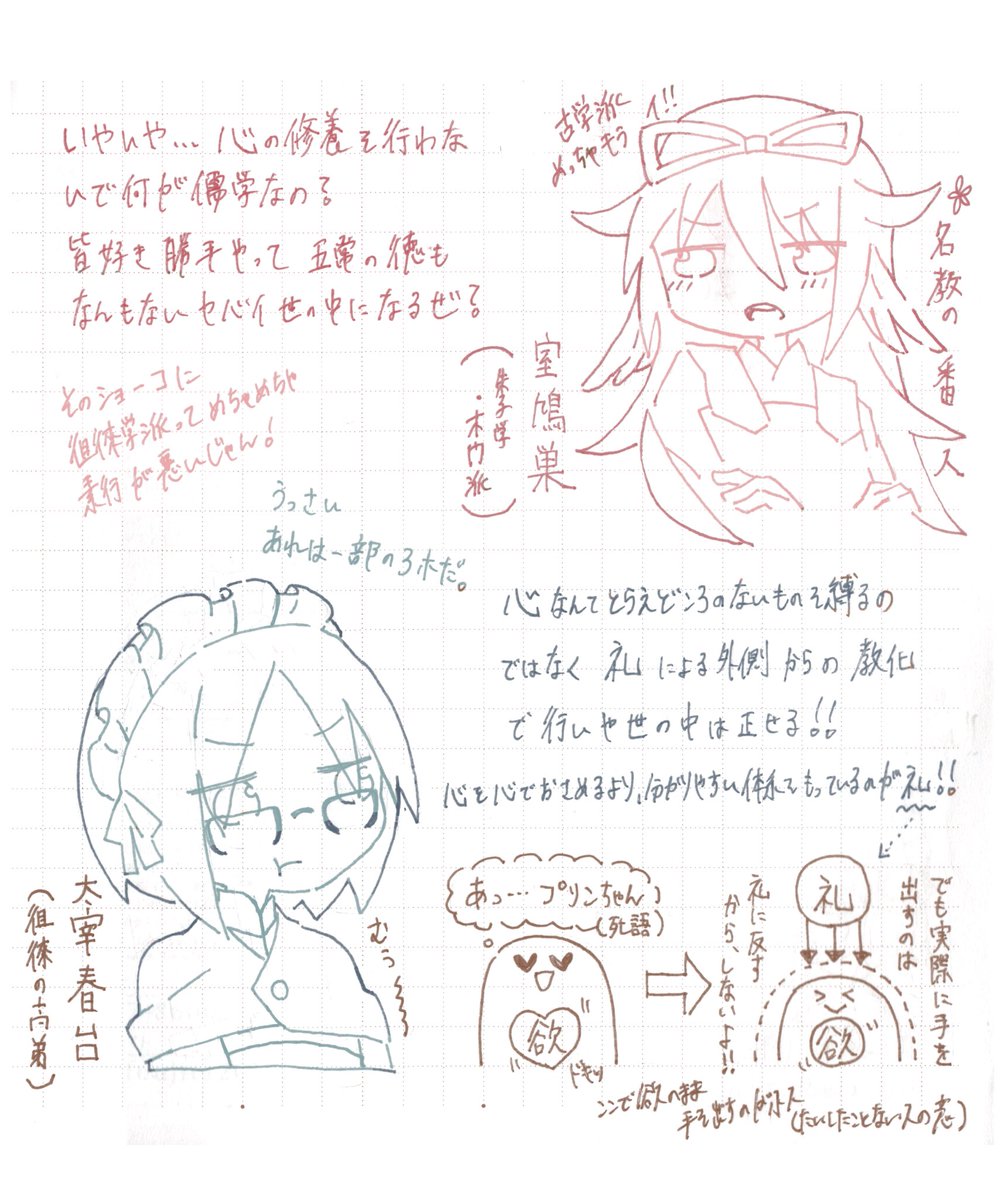 いやいや…心の修養を行わな
いで何が儒学なの?
皆好き勝手やって五常の徳も
なんもないヤバイ世の中になるぜ?
古学派
めっちゃもう
イ!!
名教の番人
室鳩巣
(朱子学
・木門派)
そのショーコに
徂徠学派ってめちゃめちゃ
素行が悪いじゃん!
うっさい
あれは一部のアホだ。
心なんてとらえどころのないものを縛るの
ではなく礼による外側からの教化
で行いや世の中は正せる!!
心を心でおさめるより、分かりやすい体系をもっているのが礼!!
太宰春台
(徂徠の高弟)
むぅ〜
あっ…プリンちゃん
(死語)
欲
ドキッ
礼に反す
から、しないよ!!
礼
欲
でも実際に手を
出すのは
ここで欲のまま
手を出すのはボンス
(たいしたことない人の意)